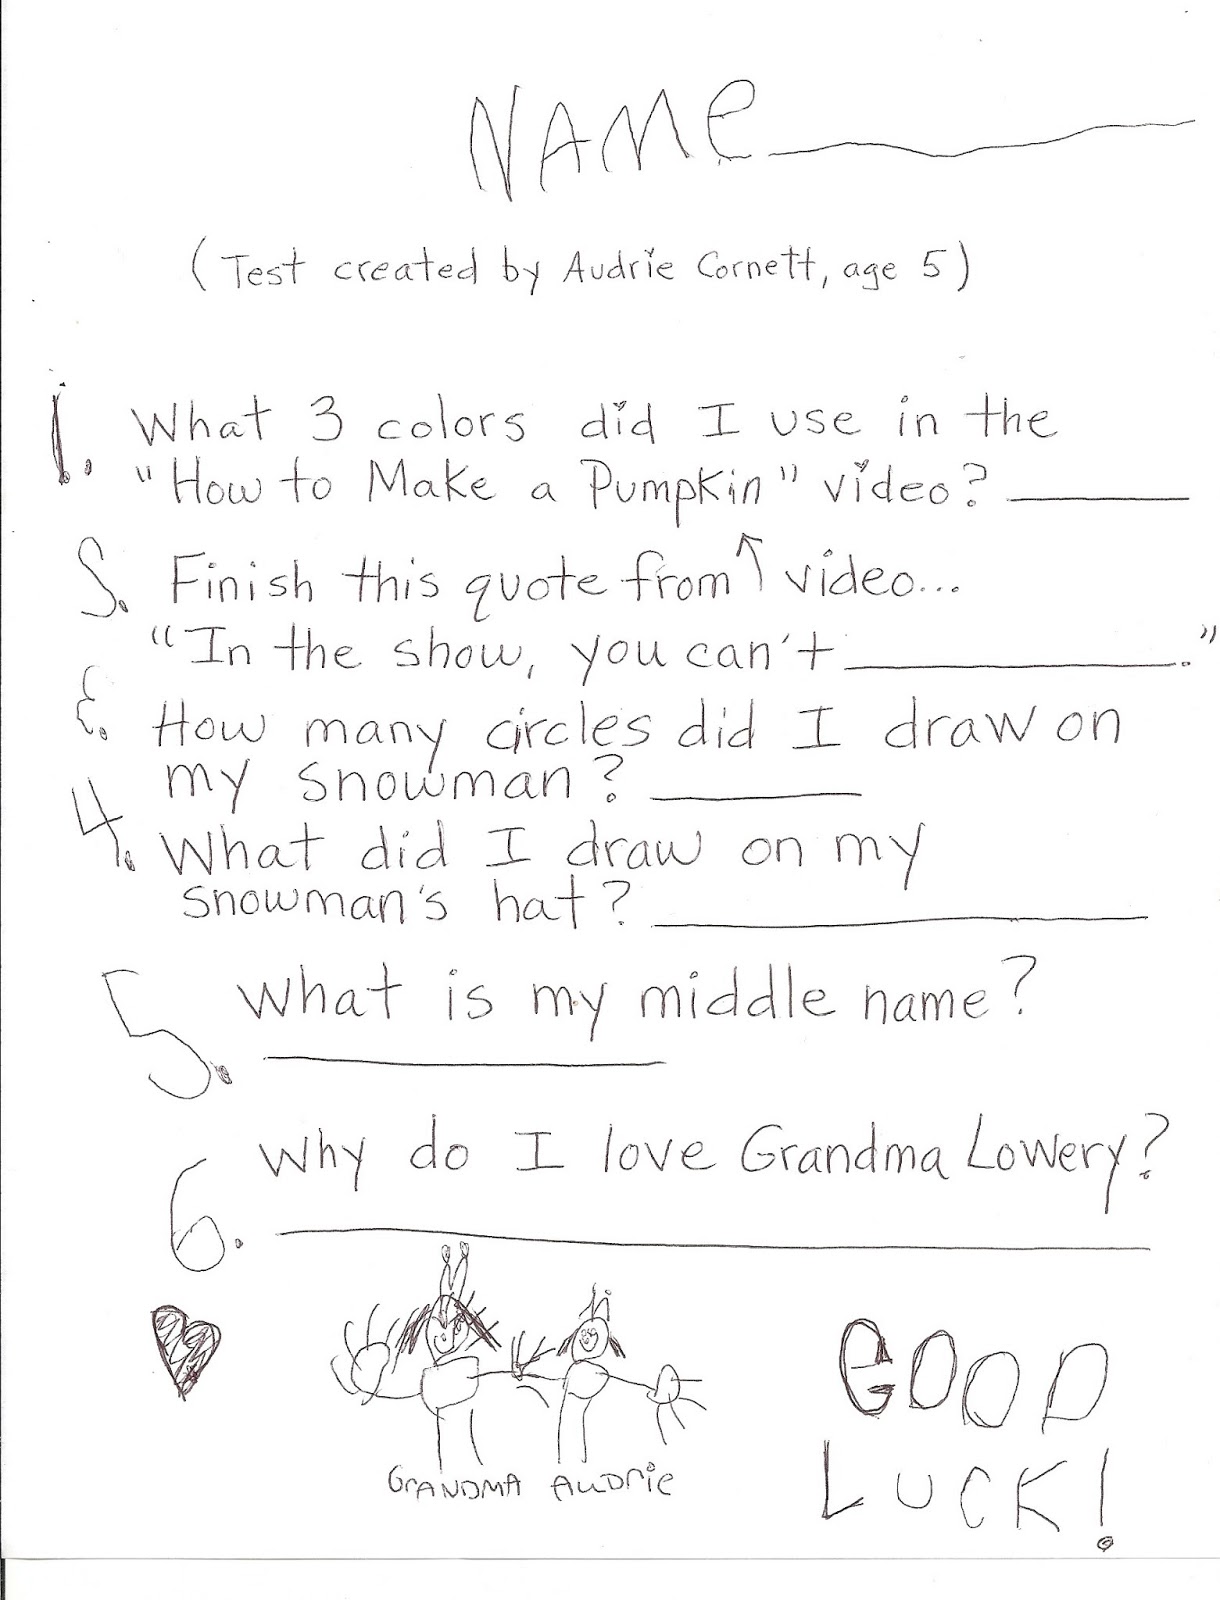 NAMe
(Test created by Audrie Cornett, age 5)
1. What 3 colors did I use in the
"How to Make a Pumpkin" video?
2. Finish this quote from ↑ video...
"In the show, you can't ."
3. How many circles did I draw on
my snowman?
4. What did I draw on my
snowman's hat?
5. What is my middle name?
6. Why do I love Grandma Lowery?
GrANDMA AuDrie
GOOD
LUCK!